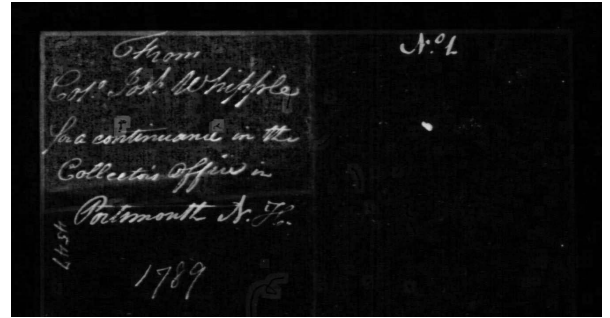 From
Colº Josh. Whipple
for a continuance in the
Collectors Office in
Portsmouth N. H.
1789
Nº 1